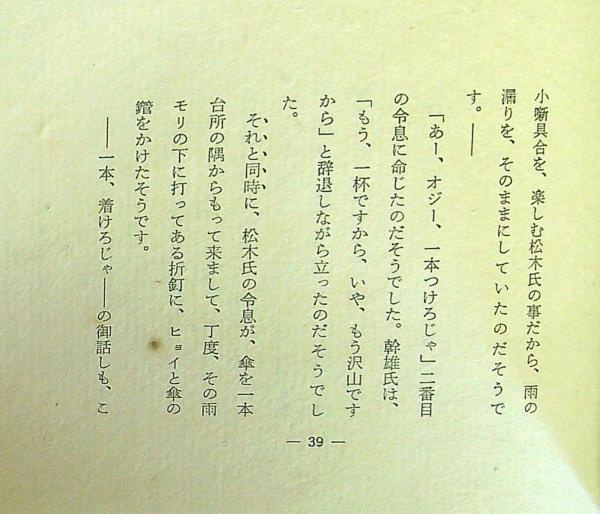 小噺具合を、楽しむ松木氏の事だから、雨の
漏りを、そのままにしていたのだそうで
す。――
「あー、オジー、一本つけろじゃ」二番目
の令息に命じたのだそうでした。幹雄氏は、
「もう、一杯ですから、いや、もう沢山です
から」と辞退しながら立ったのだそうでし
た。
それと同時に、松木氏の令息が、傘を一本
台所の隅からもって来まして、丁度、その雨
モリの下に打ってある折釘に、ヒョイと傘の
鐺をかけたそうです。
――一本、着けろじゃ――の御話しも、こ
― 39 ―